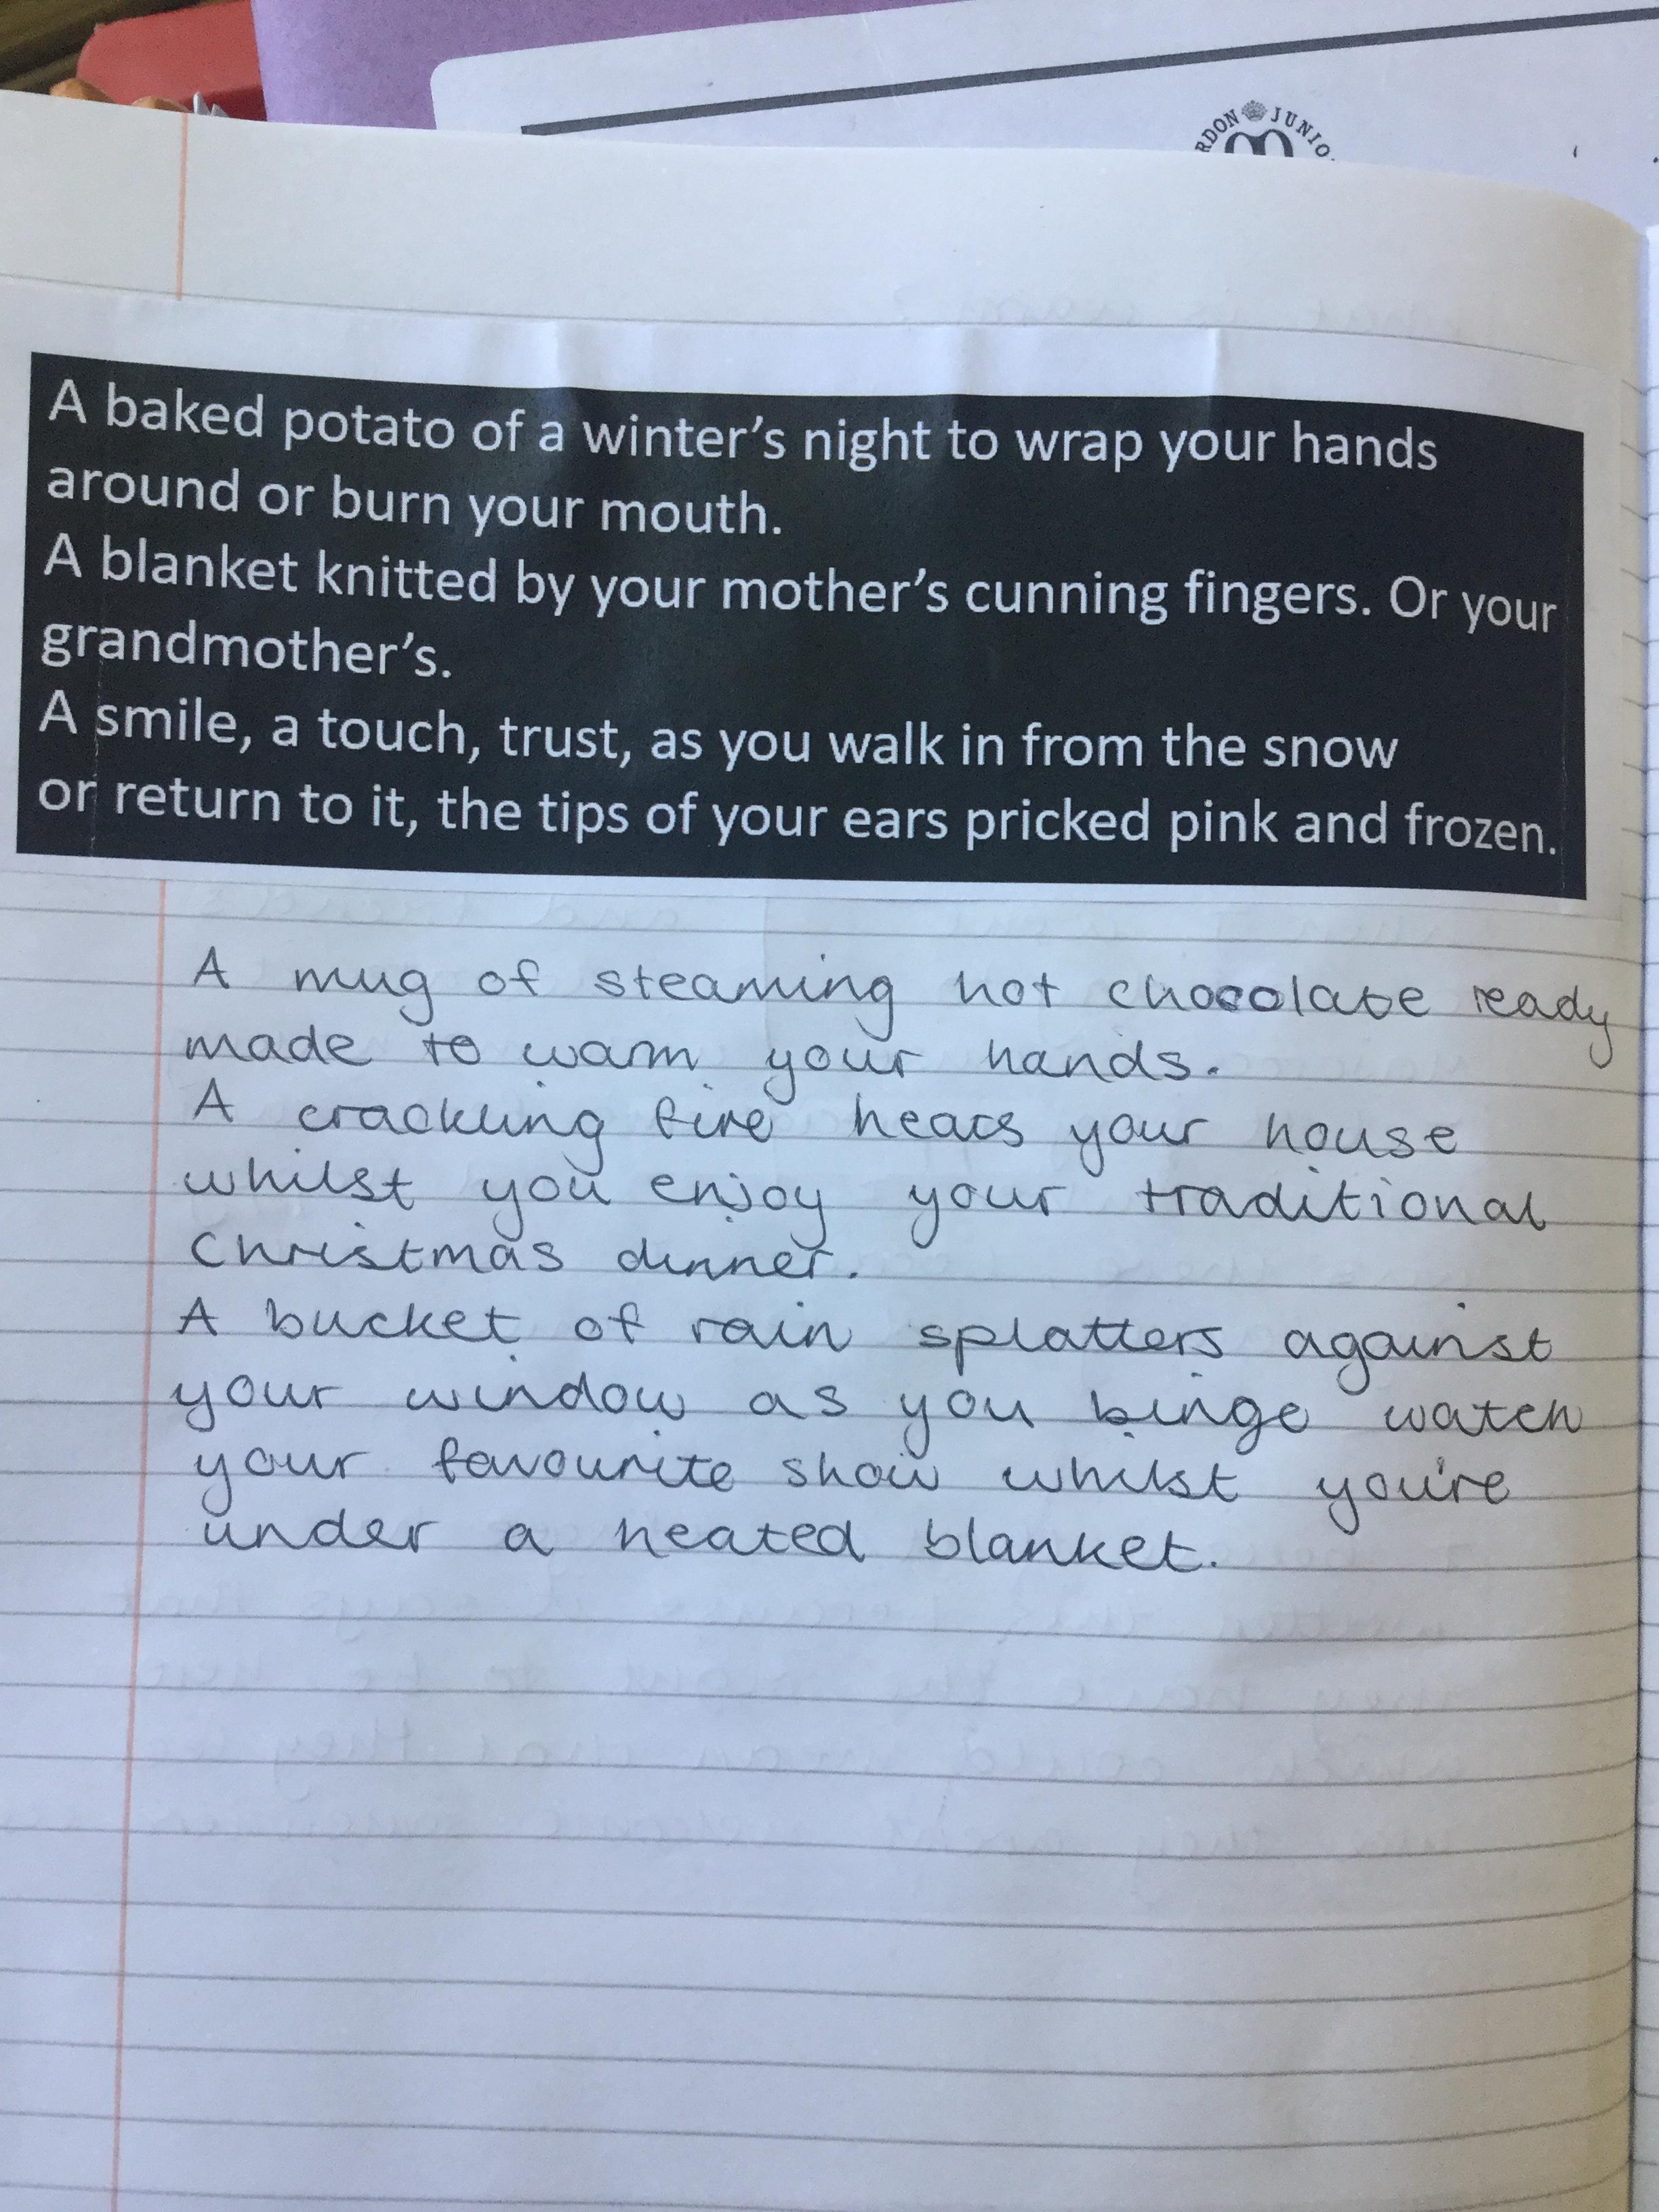 RDON JUNIO
A baked potato of a winter's night to wrap your hands
around or burn your mouth.
A blanket knitted by your mother's cunning fingers. Or your
grandmother's.
A smile, a touch, trust, as you walk in from the snow
or return to it, the tips of your ears pricked pink and frozen.
A mug of steaming hot chocolate ready
made to warm your hands.
A crackling fire heats your house
whilst you enjoy your traditional
Christmas dinner.
A bucket of rain splatters against
your window as you binge watch
your favourite show whilst you're
under a heated blanket.